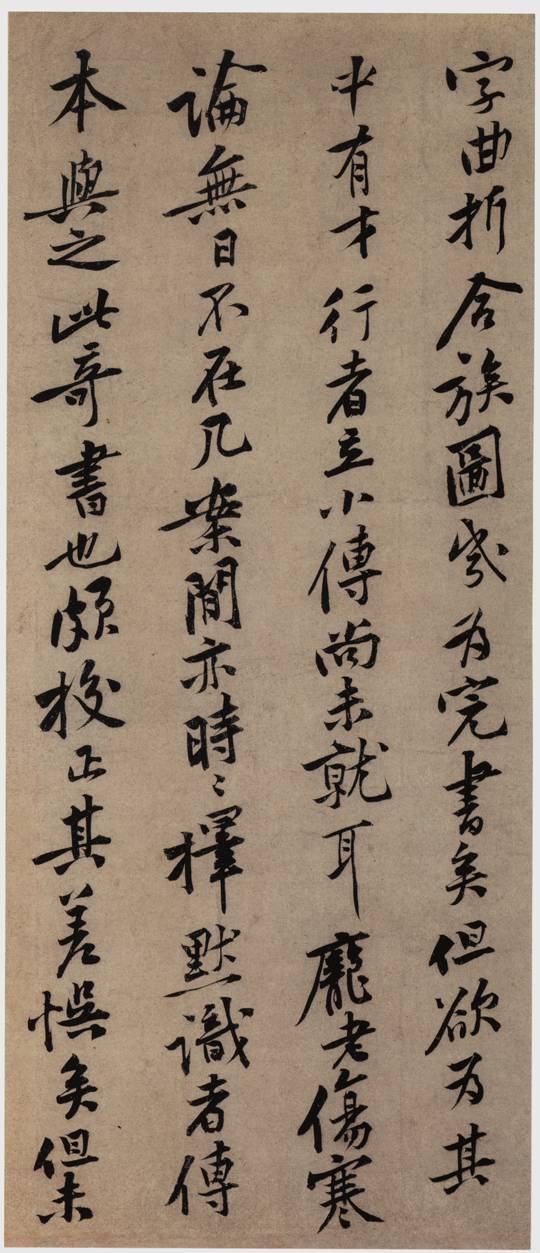 字曲折合族圖幾为完書矣但欲为其
中有才行者立小傳尚未就耳龐老傷寒
論無日不在几案間亦時〻擇默識者傳
本與之此奇書也頗校正其差悞矣但未